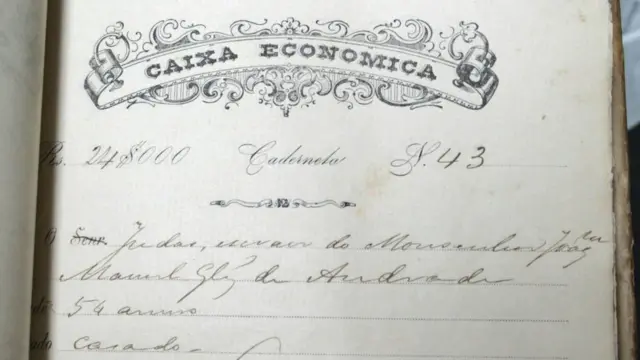 CAIXA ECONOMICA
Rs. 24$000 Caderneta N. 43
O Senr. Judas, escravo do Monsenhor Joaqm
Manoel de Andrade
54 annos
ado casado